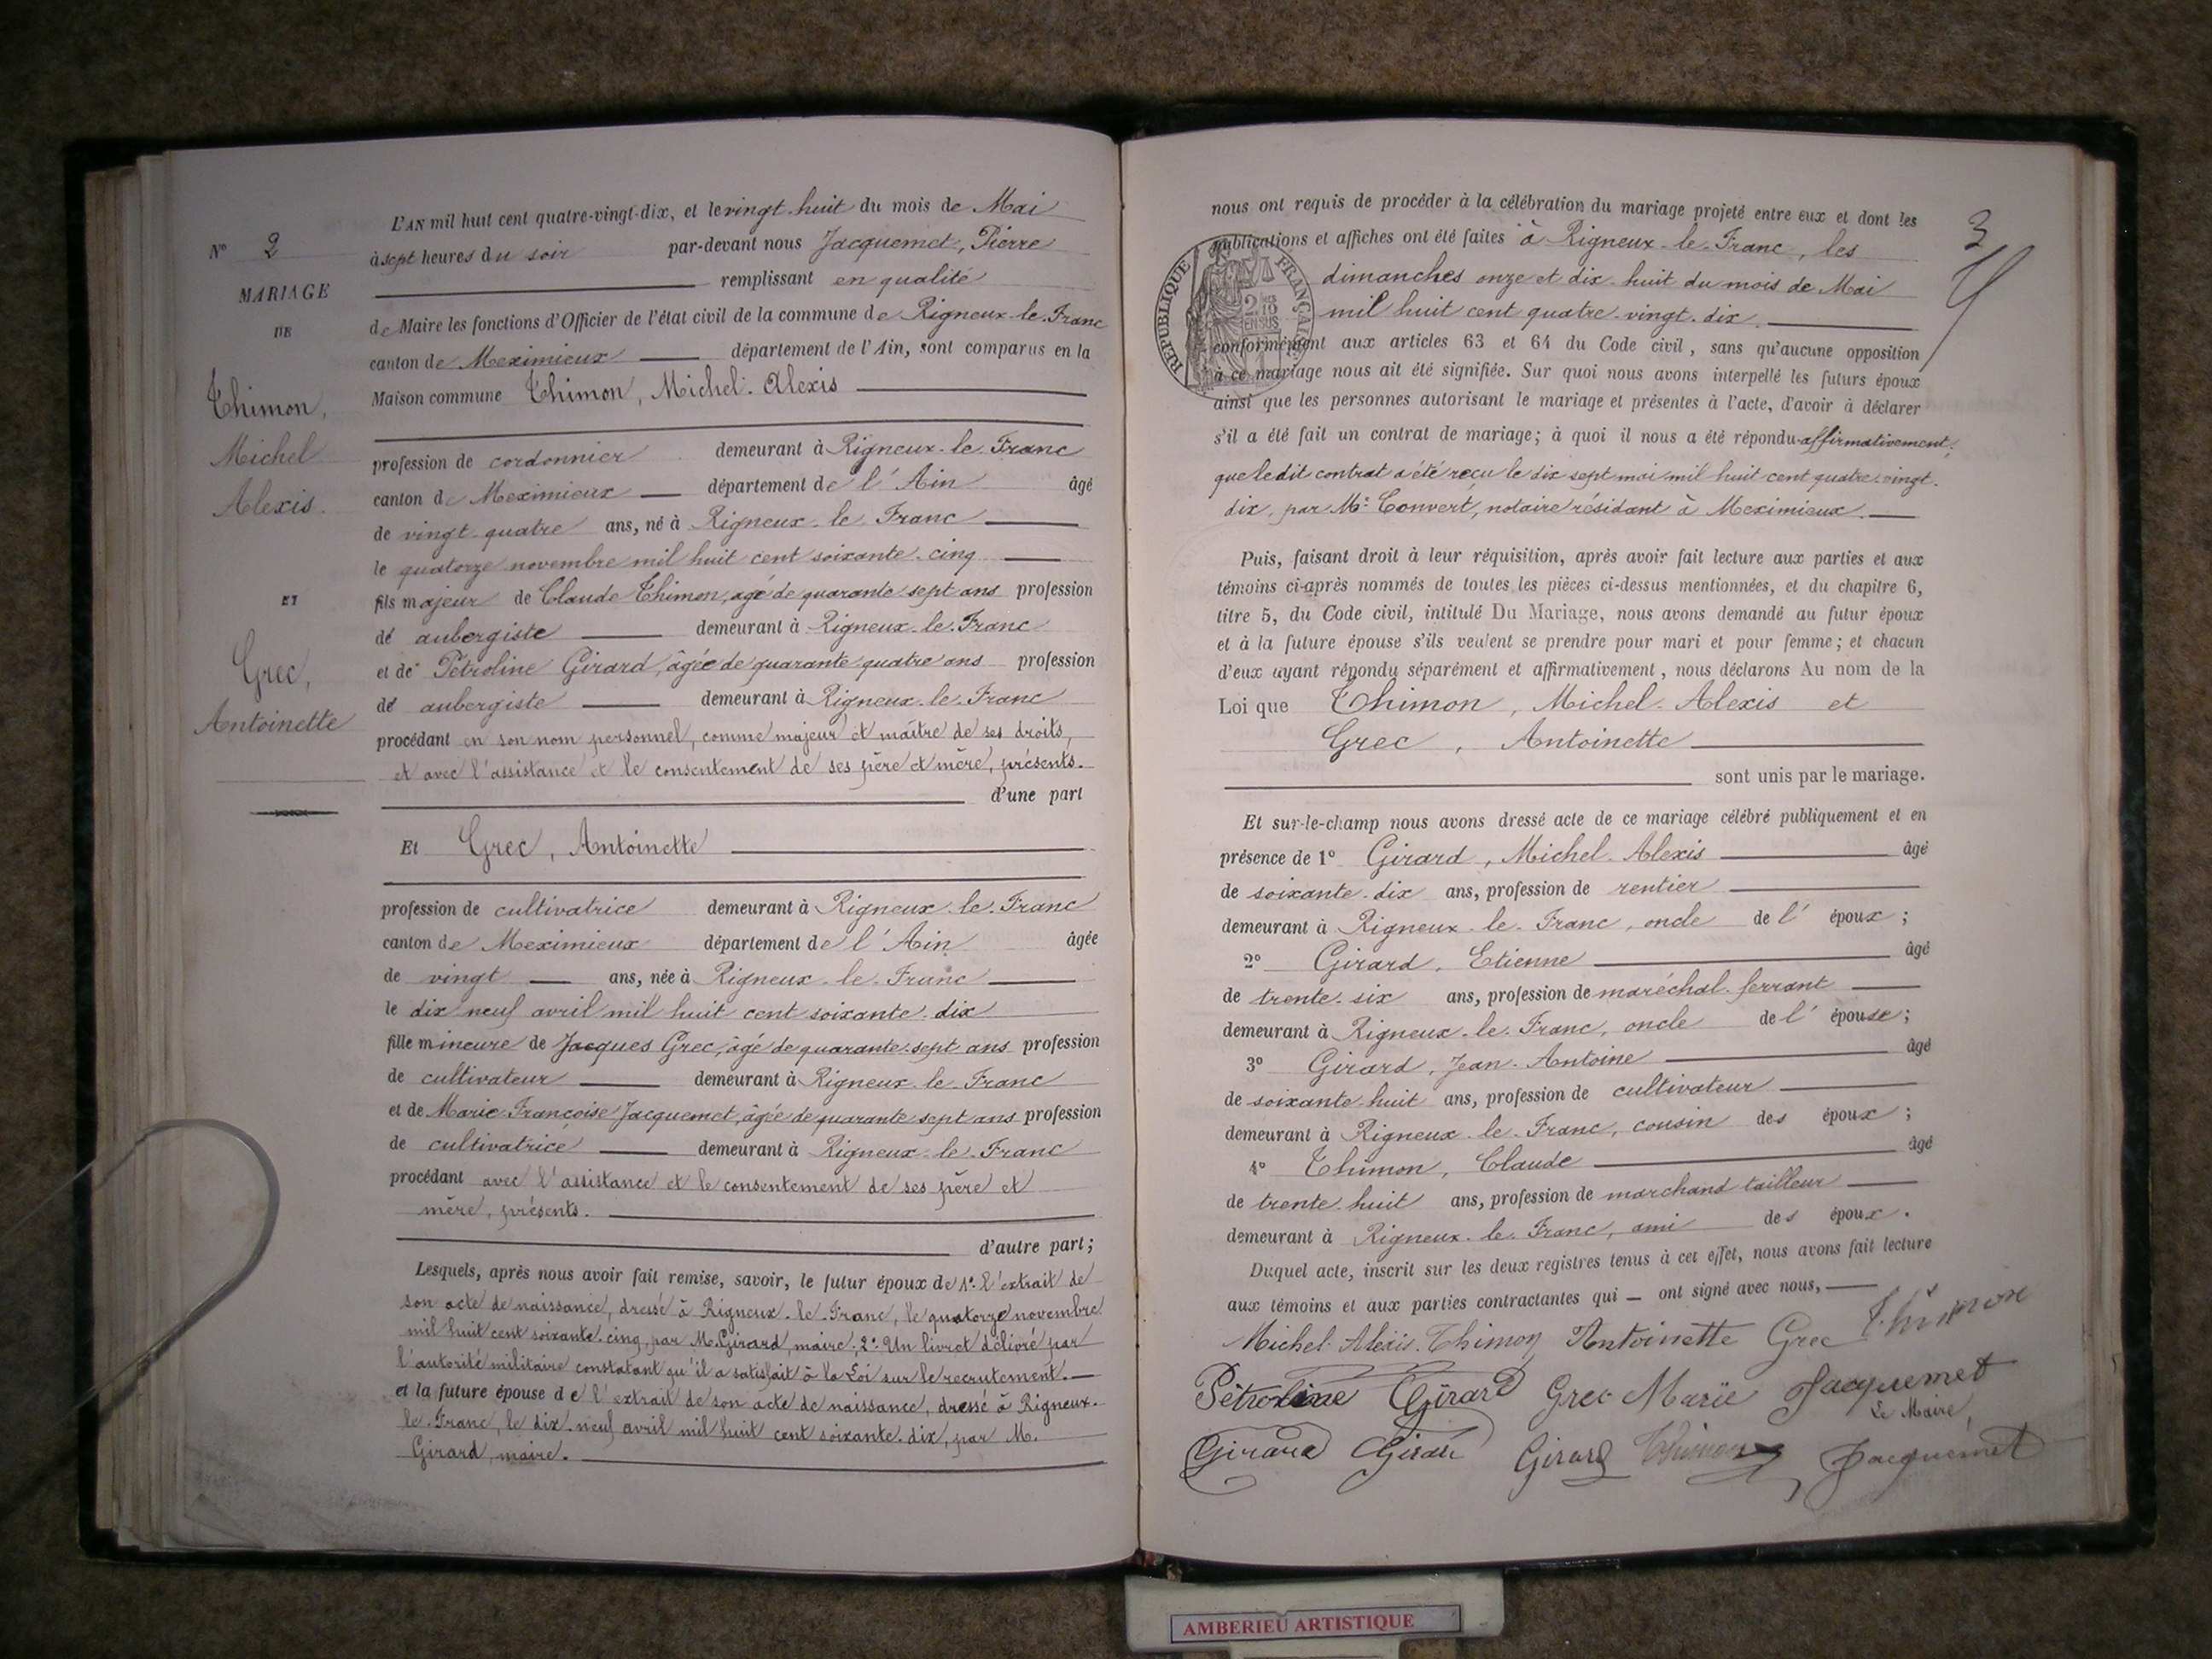 L'AN mil huit cent quatre-vingt-dix, et le vingt-huit du mois de Mai
N° 2
à sept heures du soir par-devant nous Jacquemet, Pierre
remplissant en qualité
MARIAGE
DE
de Maire les fonctions d'Officier de l'état civil de la commune de Rigneux-le-Franc
canton de Meximieux département de l'Ain, sont comparus en la
Maison commune Thimon, Michel-Alexis
Thimon,
Michel
Alexis.
profession de cordonnier demeurant à Rigneux-le-Franc
canton de Meximieux département de l'Ain âgé
de vingt-quatre ans, né à Rigneux-le-Franc
le quatorze novembre mil huit cent soixante-cinq
ET
fils majeur de Claude Thimon, agé de quarante-sept ans profession
de aubergiste demeurant à Rigneux-le-Franc
et de Pétroline Girard, âgée de quarante-quatre ans profession
de aubergiste demeurant à Rigneux-le-Franc
Grec,
Antoinette
procédant en son nom personnel, comme majeur et maître de ses droits,
et avec l'assistance et le consentement de ses père et mère, présents.
d'une part
Et Grec, Antoinette
profession de cultivatrice demeurant à Rigneux-le-Franc
canton de Meximieux département de l'Ain âgée
de vingt ans, née à Rigneux-le-Franc
le dix-neuf avril mil huit cent soixante-dix
fille mineure de Jacques Grec, âgé de quarante-sept ans profession
de cultivateur demeurant à Rigneux-le-Franc
et de Marie-Françoise Jacquemet, âgée de quarante-sept ans profession
de cultivatrice demeurant à Rigneux-le-Franc
procédant avec l'assistance et le consentement de ses père et
mère, présents.
d'autre part;
Lesquels, après nous avoir fait remise, savoir, le futur époux de 1° l'extrait de
son acte de naissance, dressé à Rigneux-le-Franc, le quatorze novembre
mil huit cent soixante-cinq, par M. Girard, maire; 2° Un livret délivré par
l'autorité militaire constatant qu'il a satisfait à la Loi sur le recrutement.
et la future épouse de l'extrait de son acte de naissance, dressé à Rigneux-
le-Franc, le dix-neuf avril mil huit cent soixante-dix, par M.
Girard, maire.
3
nous ont requis de procéder à la célébration du mariage projeté entre eux et dont les
publications et affiches ont été faites à Rigneux-le-Franc, les
dimanches onze et dix-huit du mois de Mai
mil huit cent quatre-vingt-dix
RÉPUBLIQUE FRANÇAISE
conformément aux articles 63 et 64 du Code civil, sans qu'aucune opposition
à ce mariage nous ait été signifiée. Sur quoi nous avons interpellé les futurs époux
ainsi que les personnes autorisant le mariage et présentes à l'acte, d'avoir à déclarer
s'il a été fait un contrat de mariage; à quoi il nous a été répondu affirmativement,
que ledit contrat a été reçu le dix-sept mai mil huit cent quatre-vingt-
dix, par Me Convert, notaire résidant à Meximieux.
Puis, faisant droit à leur réquisition, après avoir fait lecture aux parties et aux
témoins ci-après nommés de toutes les pièces ci-dessus mentionnées, et du chapitre 6,
titre 5, du Code civil, intitulé Du Mariage, nous avons demandé au futur époux
et à la future épouse s'ils veulent se prendre pour mari et pour femme; et chacun
d'eux ayant répondu séparément et affirmativement, nous déclarons Au nom de la
Loi que Thimon, Michel-Alexis et
Grec, Antoinette
sont unis par le mariage.
Et sur-le-champ nous avons dressé acte de ce mariage célébré publiquement et en
présence de 1° Girard, Michel-Alexis âgé
de soixante-dix ans, profession de rentier
demeurant à Rigneux-le-Franc, oncle de l'époux;
2° Girard, Etienne âgé
de trente-six ans, profession de maréchal-ferrant
demeurant à Rigneux-le-Franc, oncle de l'épouse;
3° Girard, Jean-Antoine âgé
de soixante-huit ans, profession de cultivateur
demeurant à Rigneux-le-Franc, cousin des époux;
4° Thimon, Claude âgé
de trente-huit ans, profession de marchand tailleur
demeurant à Rigneux-le-Franc, ami des époux.
Duquel acte, inscrit sur les deux registres tenus à cet effet, nous avons fait lecture
aux témoins et aux parties contractantes qui ont signé avec nous,
Michel-Alexis Thimon Antoinette Grec Thimon
Pétroline Girard Grec Marie Jacquemet
Le Maire,
Girard Girard Girard Thimon Jacquemet
AMBERIEU ARTISTIQUE